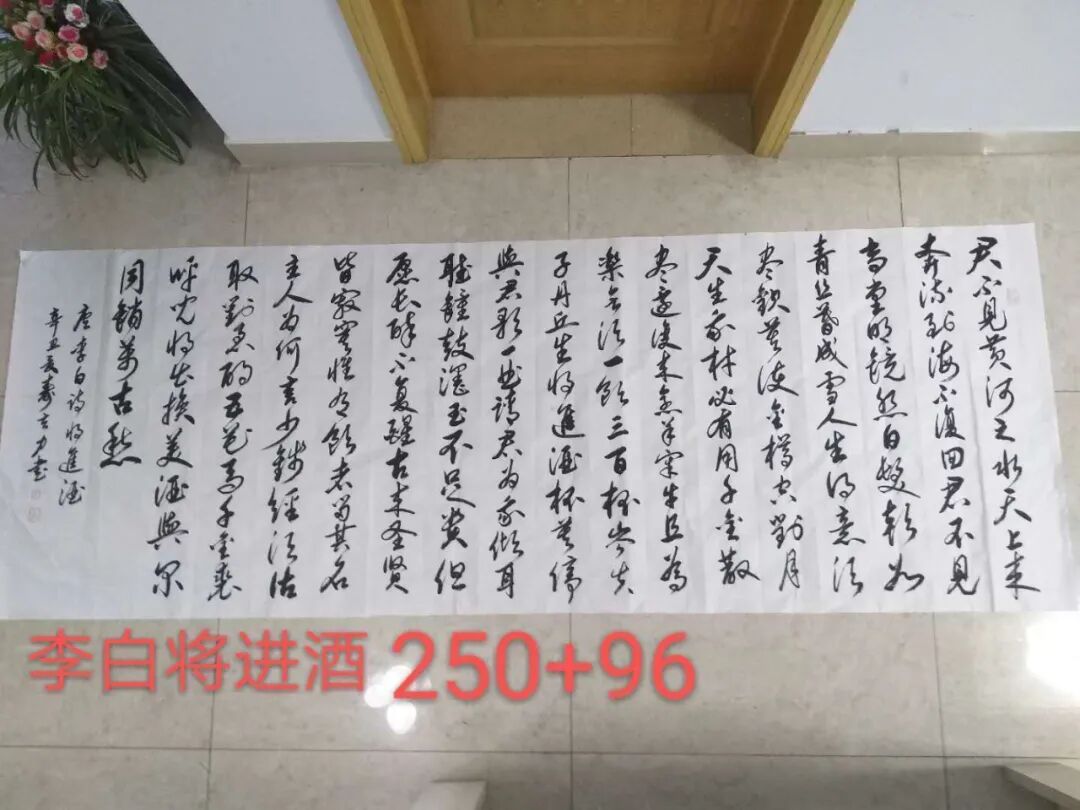 君不見黄河之水天上来
奔流到海不復回君不見
高堂明镜悲白髮朝如
青丝暮成雪人生得意须
尽歡莫使金樽空對月
天生我材必有用千金散
盡還復来烹羊宰牛且為
樂會须一飲三百杯岑夫
子丹丘生将進酒杯莫停
與君歌一曲請君为我倾耳
聽鐘鼓馔玉不足贵但
愿长醉不复醒古来圣贤
皆寂寞惟有飲者留其名
主人为何言少錢經须沽
取對君酌五花馬千金裘
呼児将出换美酒與尔
同銷萬古愁
唐李白诗将進酒
辛丑夏
李白将进酒 250+96